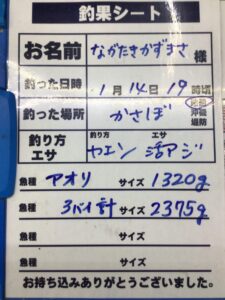 釣果シート
お名前 ながたきかずまさ 様
釣った日時 1月14日19時頃
釣った場所 かさぼ 地磯 沖磯 堤防
釣り方 エサ 釣り方 ヤエン エサ 活アジ
魚種 アオリ サイズ 1320g
魚種 3パイ計 サイズ 2375g
魚種 サイズ
魚種 サイズ
お持ち込みありがとうございました。